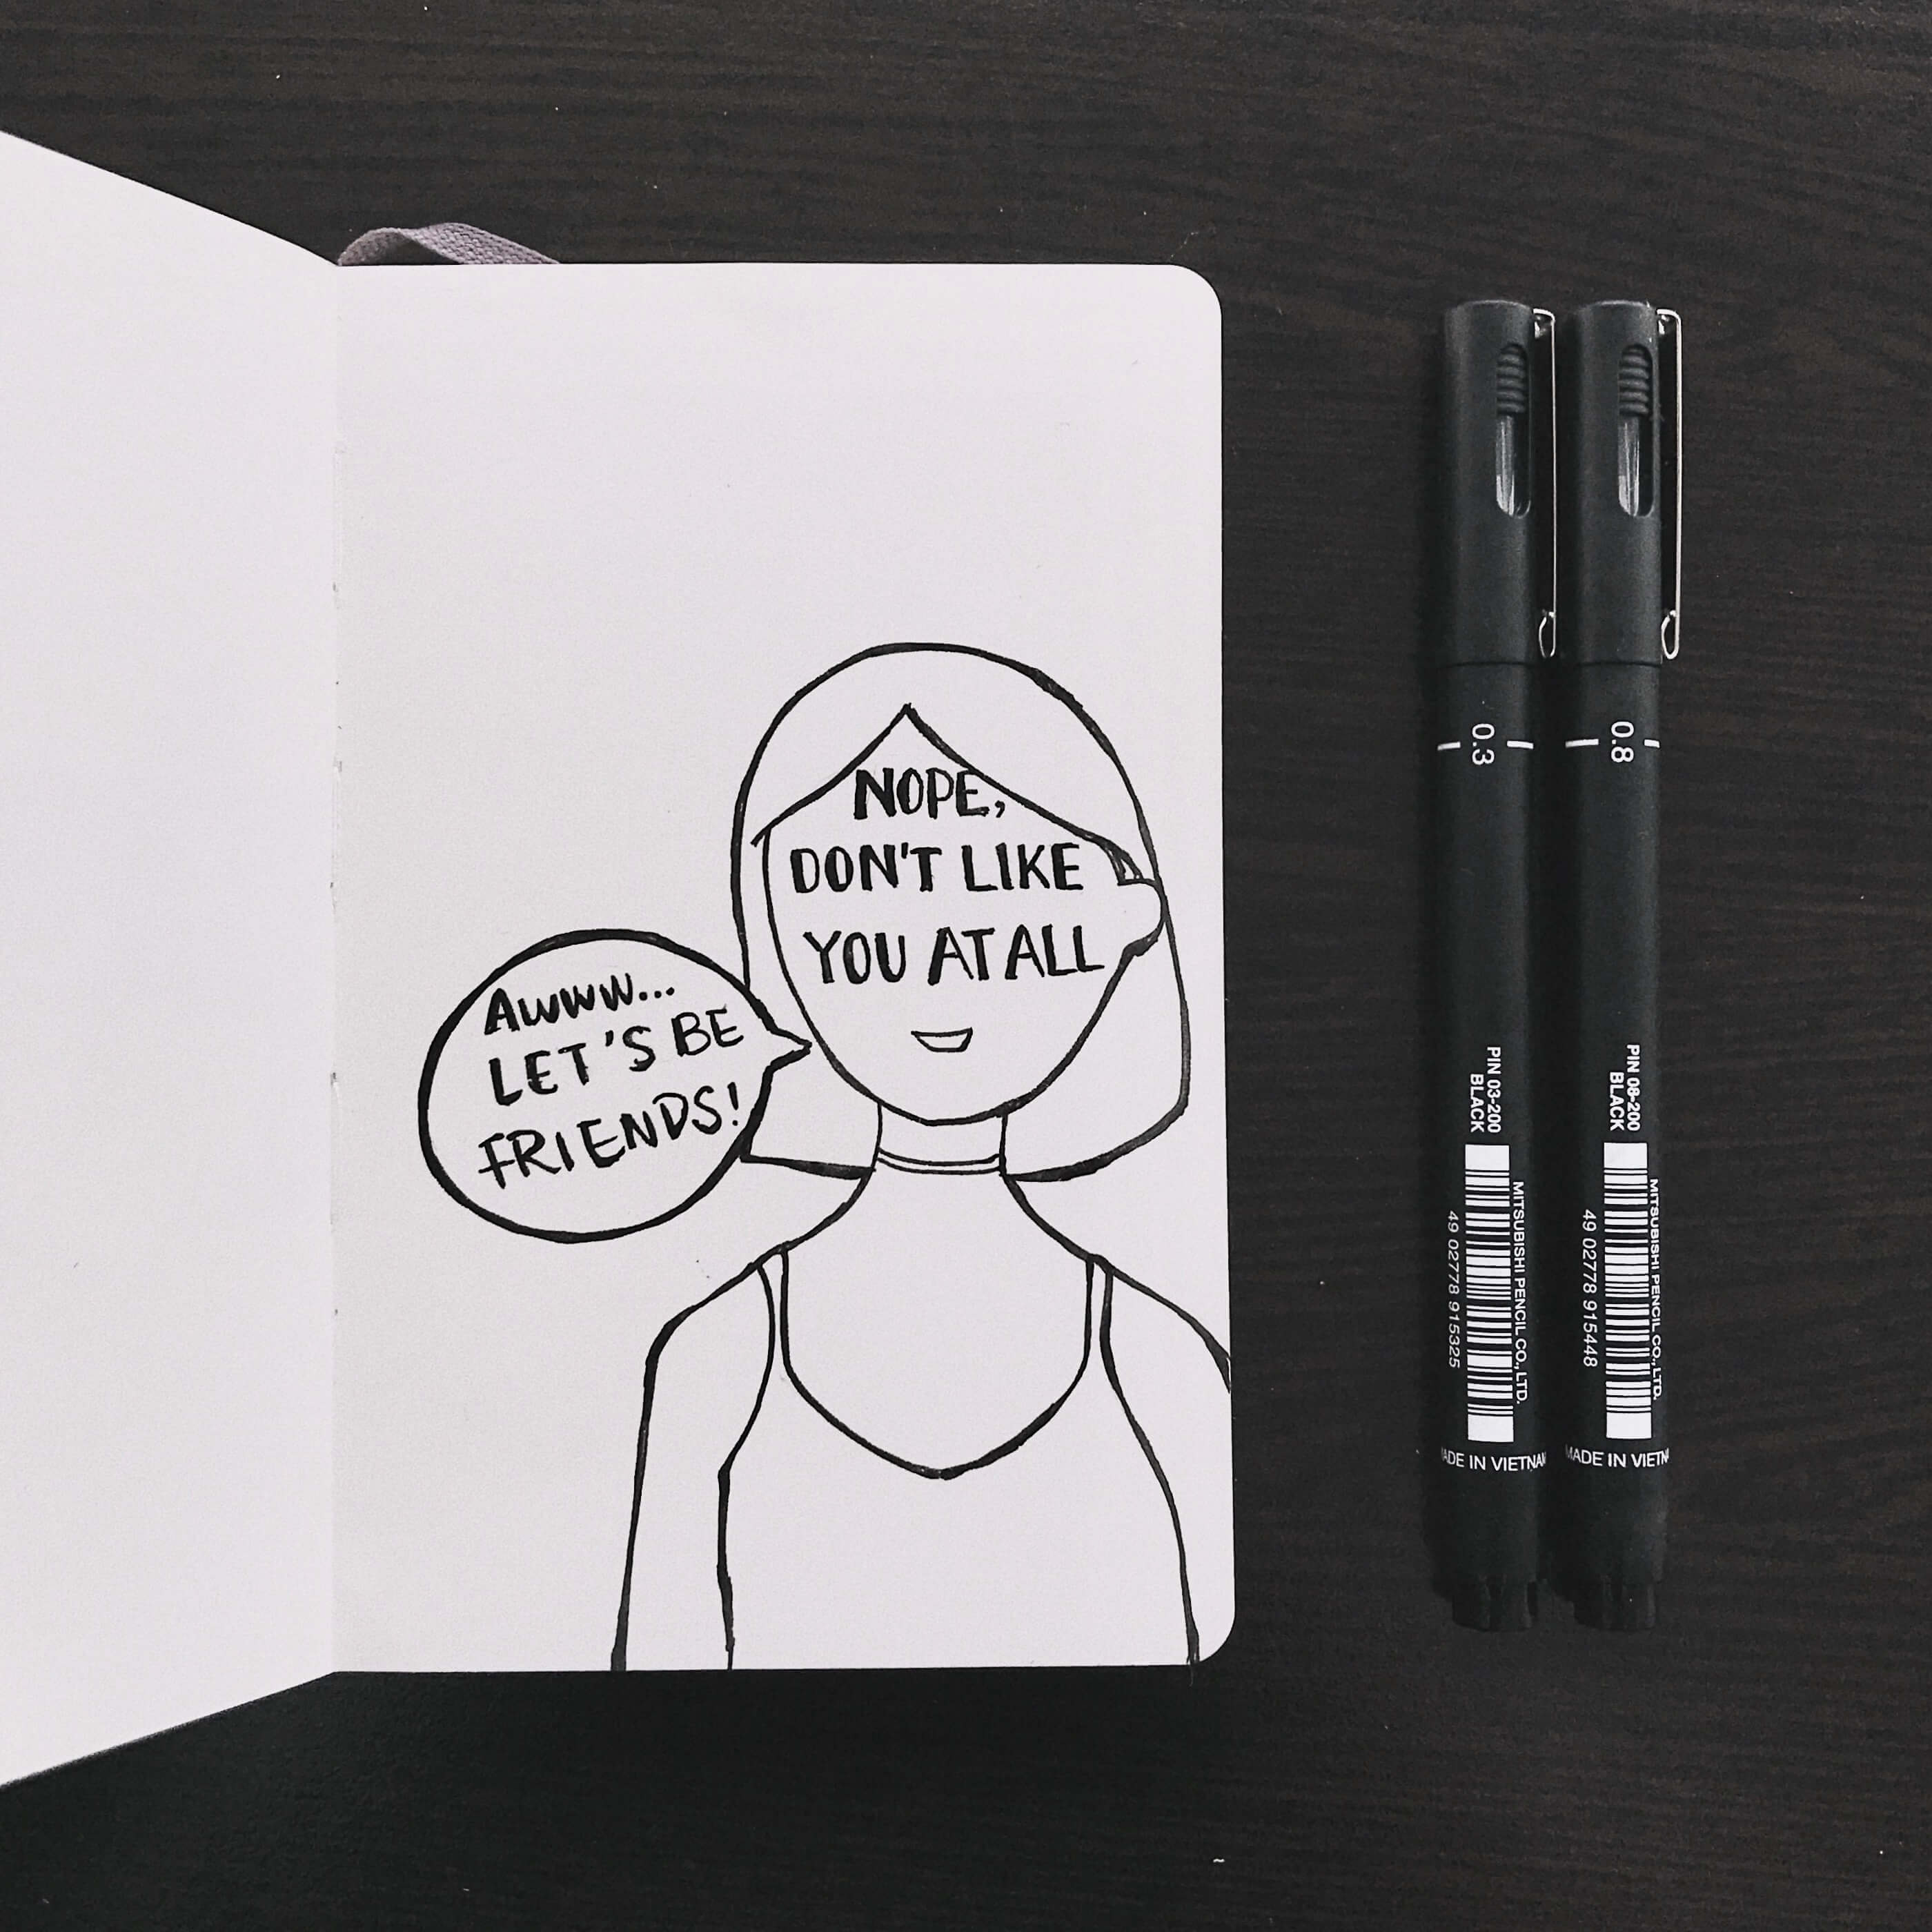 NOPE,
DON'T LIKE
YOU AT ALL
AWWW...
LET'S BE
FRIENDS!
0.3
PIN 03-200
BLACK
MITSUBISHI PENCIL CO., LTD.
49 02778 915325
ADE IN VIETNAM
0.8
PIN 08-200
BLACK
MITSUBISHI PENCIL CO., LTD.
49 02778 915448
MADE IN VIETN